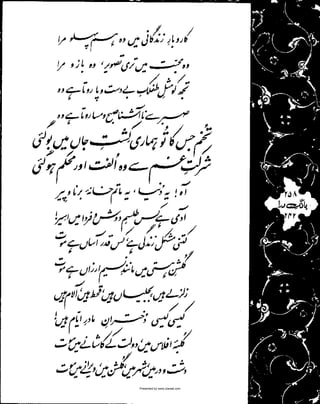 کاروبارِ زندگانی میں وہ ہم پہلو مرا
وہ محبت میں تری تصویر، وہ بازو مرا
تجھ کو مثلِ طفلکِ بے دست و پا روتا ہے وہ
صبر سے ناآشنا صبح و مسا روتا ہے وہ
تخم جس کا تو ہماری کشتِ جاں میں بو گئی
شرکتِ غم سے وہ الفت اور محکم ہو گئی
آہ! یہ دنیا، یہ ماتم خانۂ برنا و پیر
آدمی ہے کس طلسمِ دوش و فردا میں اسیر!
کتنی مشکل زندگی ہے، کس قدر آساں ہے موت
گلشنِ ہستی میں مانندِ نسیم ارزاں ہے موت
زلزلے ہیں، بجلیاں ہیں، قحط ہیں، آلام ہیں
کیسی کیسی دخترانِ مادرِ ایام ہیں!
کلبۂ افلاس میں، دولت کے کاشانے میں موت
دشت و در میں، شہر میں، گلشن میں، ویرانے میں موت
۲۵۸
بانگِ درا
۲۴۲
Presented by www.ziaraat.com